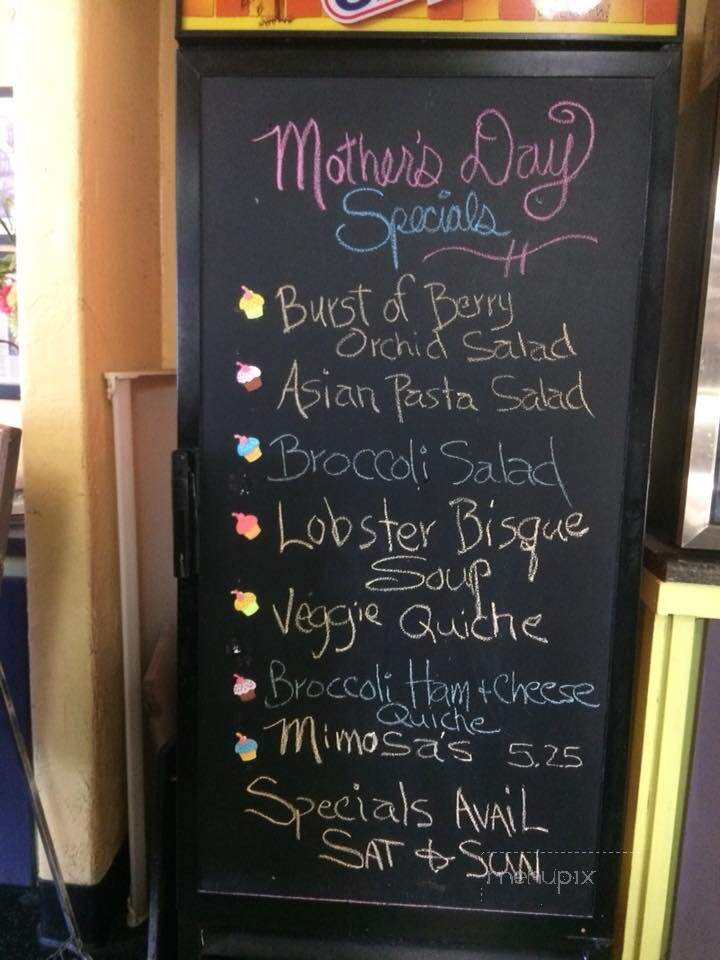 Mother's Day
Specials
Burst of Berry
Orchid Salad
Asian Pasta Salad
Broccoli Salad
Lobster Bisque
Soup
Veggie Quiche
Broccoli Ham + Cheese
Quiche
Mimosa's 5.25
Specials AVAIL
SAT & SUN
menupix